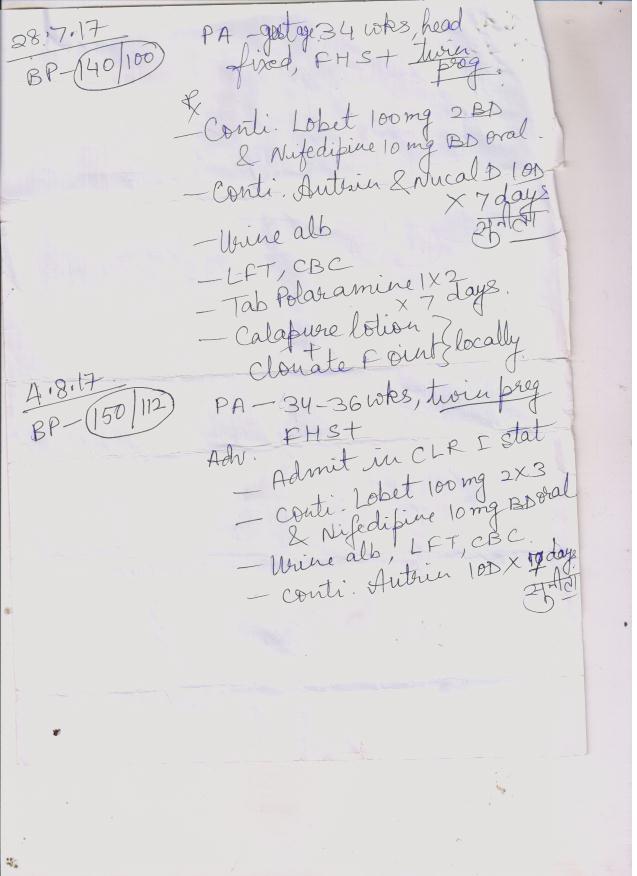 28.7.17
BP- 140/100
PA - gest age 34 wks, head
fixed, FHS+ twin
preg.
Rx
- Conti. Lobet 100mg 2 BD
& Nifedipine 10 mg BD oral.
- Conti. Autrin & Nucal D 1OD
x 7 days
सुनीता
- Urine alb
- LFT, CBC
- Tab Polaramine 1x2
x 7 days.
- Calapure lotion
+ } locally
Clonate F oint
4.8.17
BP- 150/112
PA - 34-36 wks, twin preg
FHS+
Adv.
- Admit in CLR I stat
- Conti. Lobet 100mg 2x3
& Nifedipine 10mg BD oral
- Urine alb, LFT, CBC.
- Conti. Autrin 1OD x 7 days
सुनीता